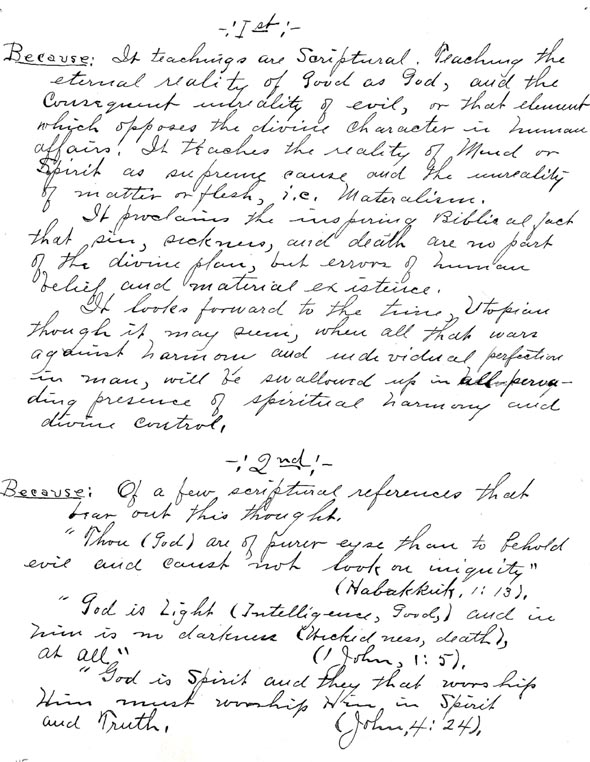 -:1st:-
Because: It teachings are Scriptural. Teaching the
eternal reality of Good as God, and the
Consequent unreality of evil, or that element
which opposes the divine character in human
affairs. It teaches the reality of Mind or
Spirit as supreme cause and the unreality
of matter or flesh, i.e. Materalism.
It proclaims the inspiring Biblical fact
that sin, sickness, and death are no part
of the divine plan, but errors of human
belief and material existence.
It looks forward to the time, Utopian
though it may seem, when all that wars
against harmony and individual perfection
in man, will be swallowed up in all perva-
ding presence of spiritual harmony and
divine control.
-:2nd:-
Because: Of a few scriptural references that
bear out this thought.
"Thou (God) are of purer eyse than to behold
evil and canst not look on iniquity"
(Habakkuk, 1:13).
"God is Light (Intelligence, Good,) and in
him is no darkness (Wickedness, death),
at all" (1 John, 1:5).
"God is Spirit and they that worship
Him must worship Him in Spirit
and Truth. (John, 4:24).